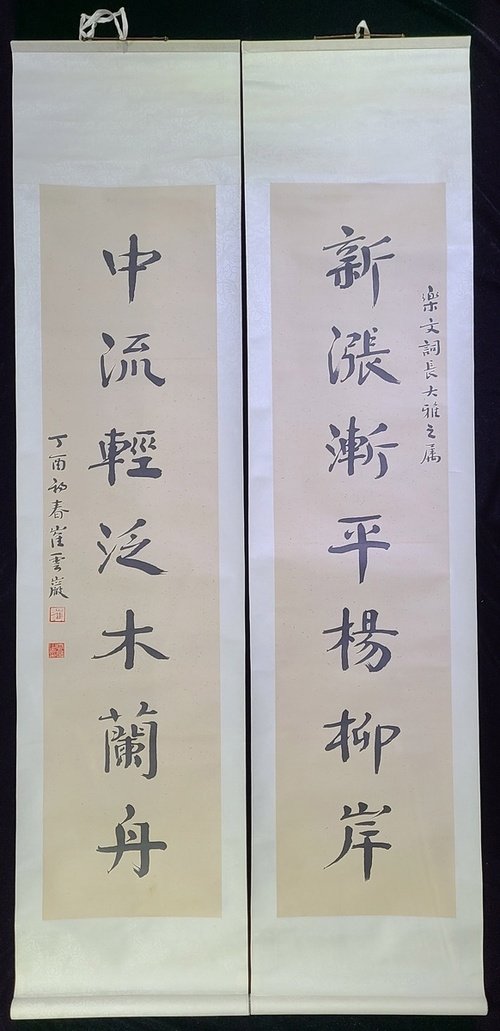 樂文詞長大雅之属
新漲漸平楊柳岸
中流輕泛木蘭舟
丁酉初春崔雲巖